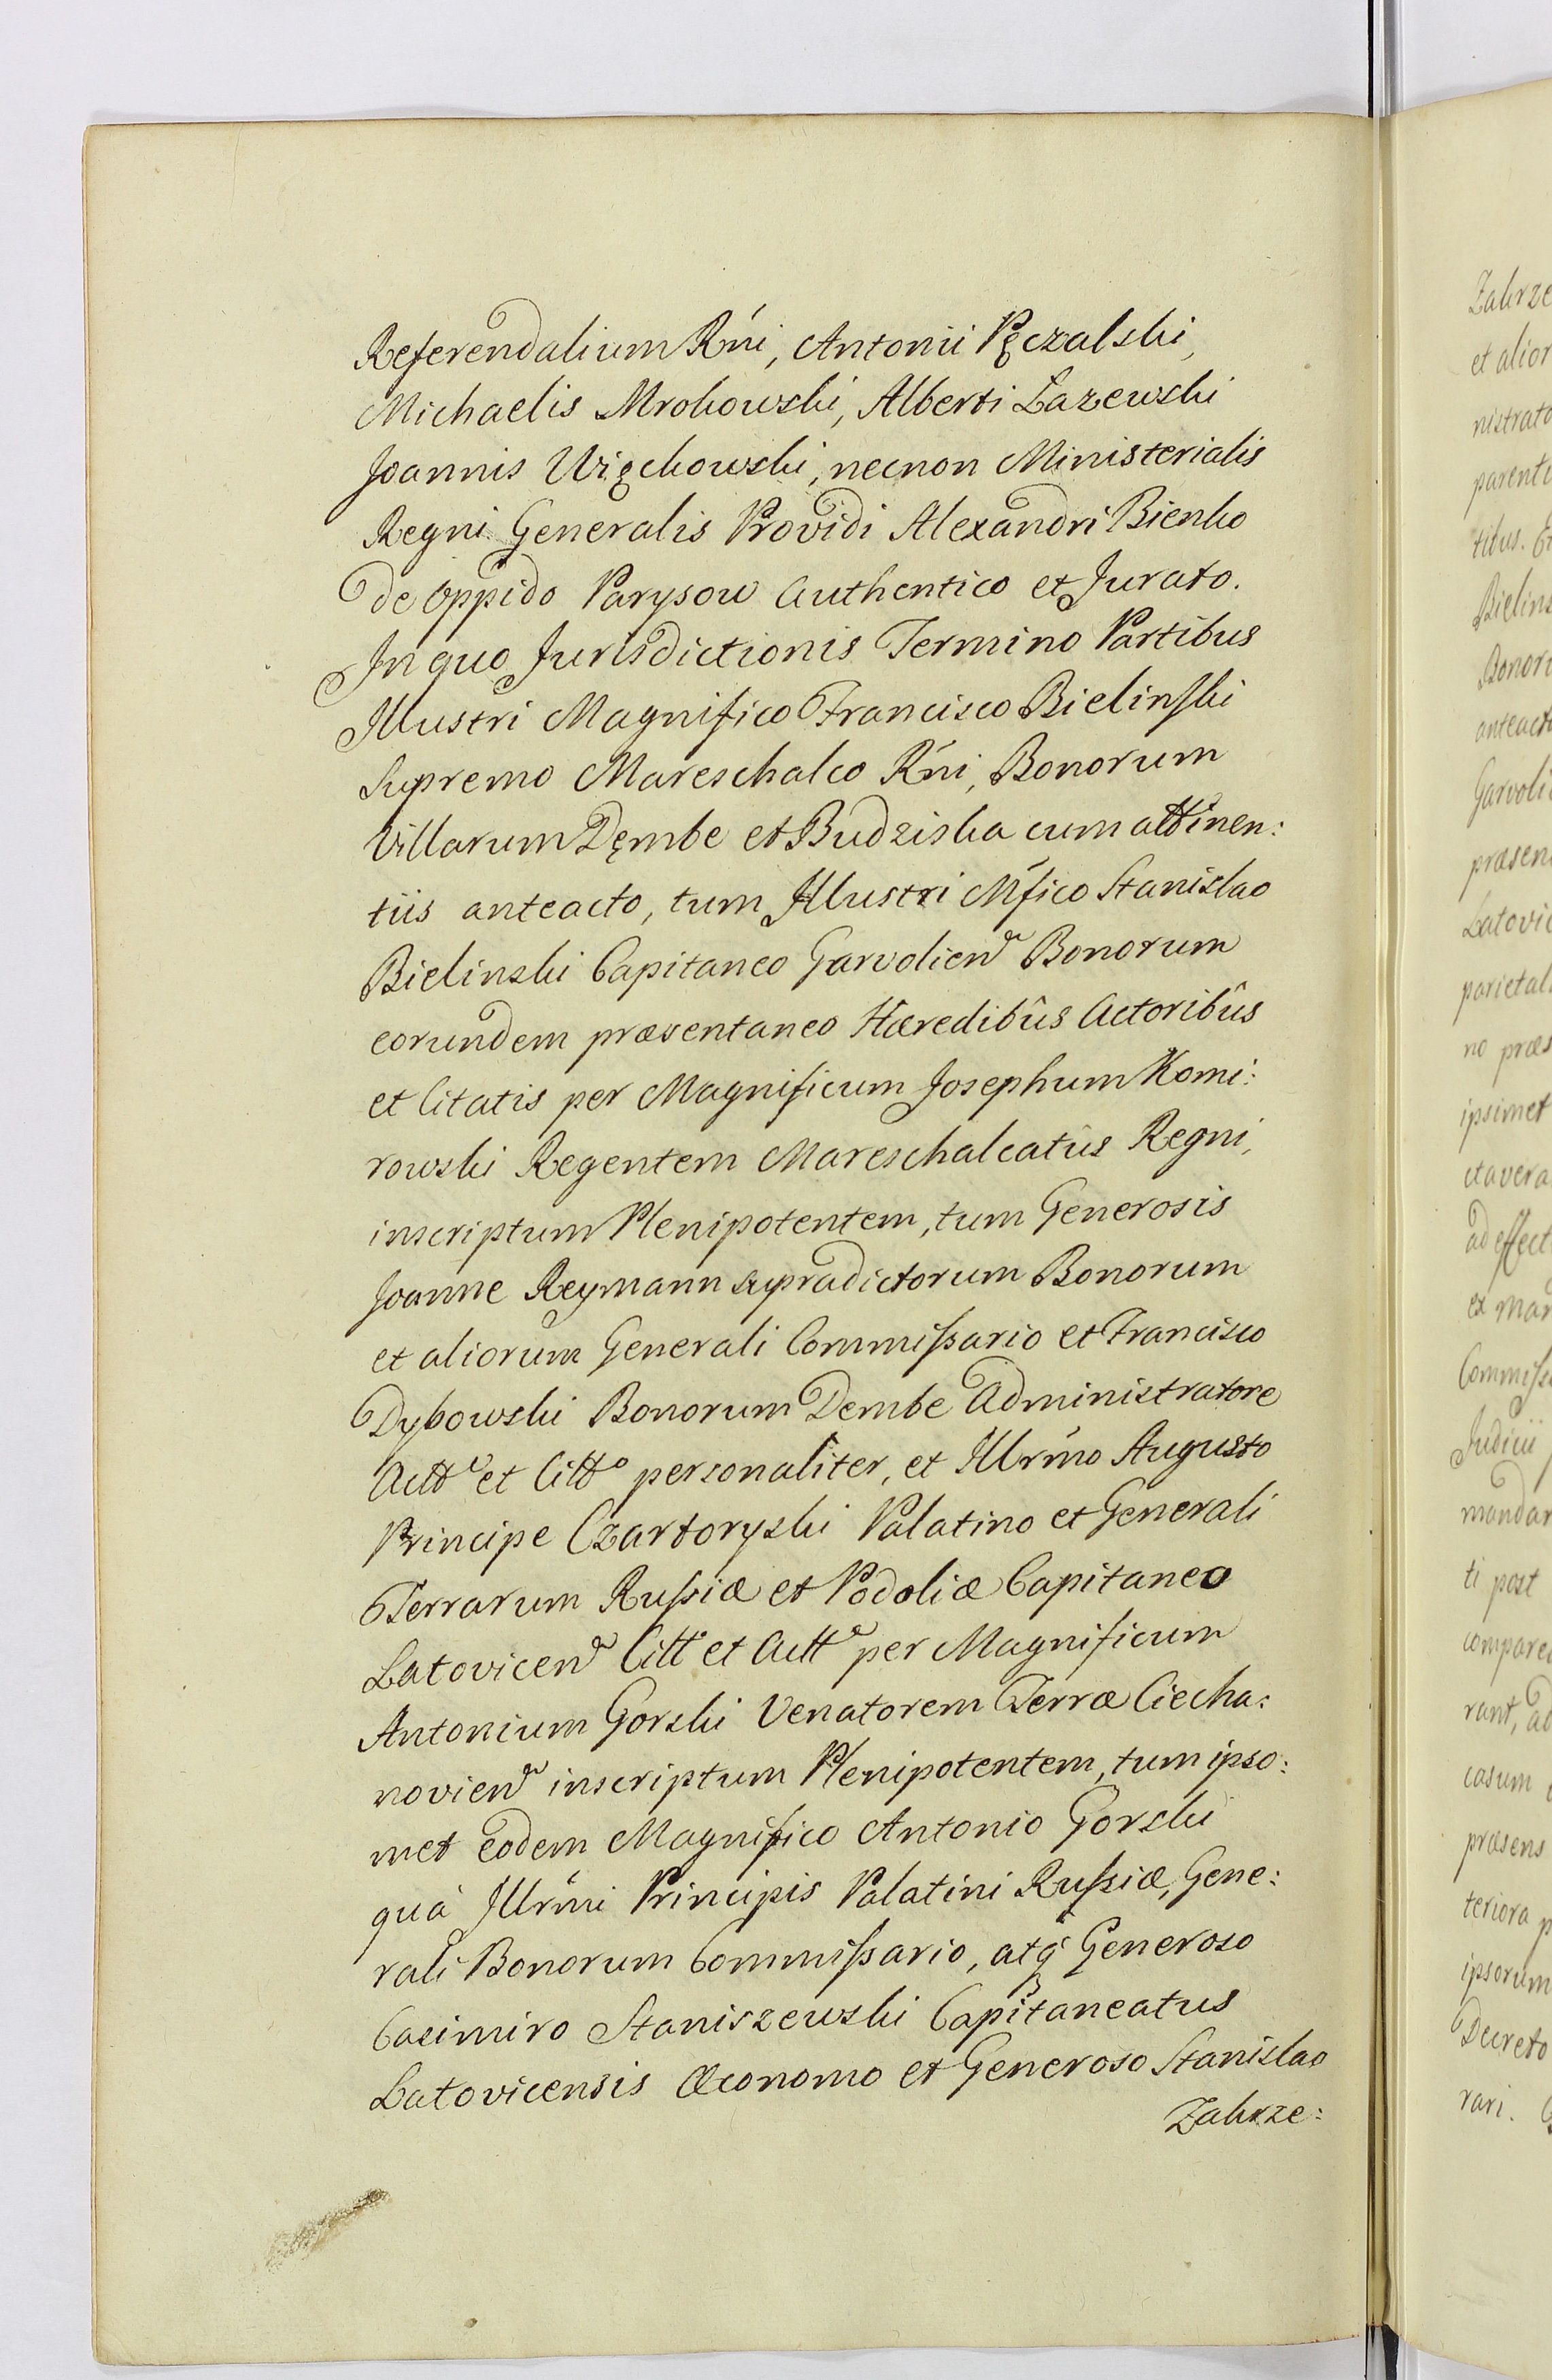 Referendalium Rńi, Antonii Pęczalski,
Michaelis Mrokowski, Alberti Łazewski
Joannis Więckowski, necnon Ministerialis
Regni Generalis Providi Alexandri Bienko
de Oppido Parysow Authentico et Jurato.
In quo Jurisdictionis Termino Partibus
Illustri Magnifico Francisco Bielinski
Supremo Mareschalco Rńi, Bonorum
Villarum Dęmbe et Budziska cum attinen:
tiis anteacto, tum Illustri Mfico Stanislao
Bielinski Capitaneo Garvolien Bonorum
eorundem præsentaneo Hæredibûs Actoribûs
et Citatis per Magnificum Josephum Komi:
rowski Regentem Mareschalcatûs Regni,
inscriptum Plenipotentem, tum Generosis
Joanne Reymann supradictorum Bonorum
et aliorum Generali Commissario et Francisco
Dybowski Bonorum Dembe Administratore
Actt et Citt personaliter, et Illrmo Augusto
Principe Czartoryski Palatino et Generali
Terrarum Russiæ et Podoliæ Capitaneo
Latovicen Citt et Actt per Magnificum
Antonium Gorski Venatorem Terræ Ciecha:
novien inscriptum Plenipotentem, tum ipso:
met eodem Magnifico Antonio Gorski
quà Illrmi Principis Palatini Russiæ, Gene:
rali Bonorum Commissario, atq Generoso
Casimiro Staniszewski Capitaneatus
Latovicensis Œconomo et Generoso Stanislao
Zakrze:
Zakrze
et alior
nistrato
parenti
titus.
Bielins
Bonoru
anteact
Garvoli
præsen
Latovic
parietal
no præs
ipsimet
et avera
ad effect
ex man
Commiss
Judicii
mandar
ti post
compare
rant, ad
casum
præsens
teriora p
ipsorum
Decreto
rari.